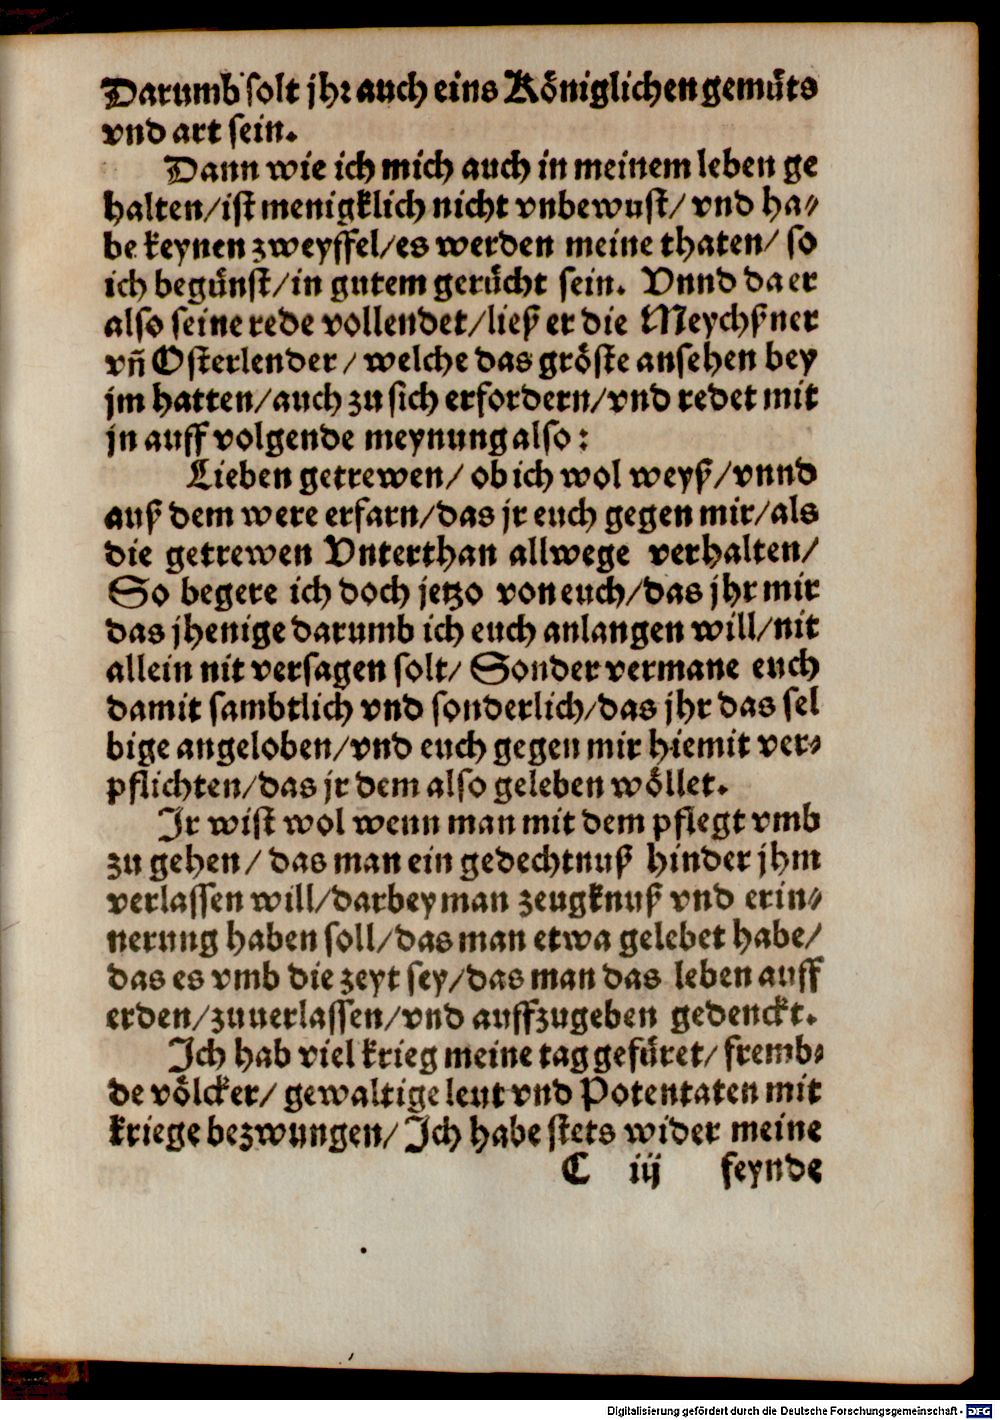 Darumb solt jhꝛ auch eins Koͤniglichen gemuͤts
vnd art sein.
Dann wie ich mich auch in meinem leben ge
halten/ist menigklich nicht vnbewust/ vnd ha⸗
be keynen zweyffel/es werden meine thaten/ so
ich beguͤnst/in gutem geruͤcht sein. Vnnd da er
also seine rede vollendet/ließ er die Meychßner
vñ Osterlender/ welche das groͤste ansehen bey
jm hatten/auch zu sich erfordern/vnd redet mit
jn auff volgende meynung also:
Lieben getrewen/ ob ich wol weyß/vnnd
auß dem were erfarn/das jr euch gegen mir/als
die getrewen Vnterthan allwege verhalten/
So begere ich doch jetzo von euch/das jhr mir
das jhenige darumb ich euch anlangen will/nit
allein nit versagen solt/ Sonder vermane euch
damit sambtlich vnd sonderlich/das jhr das sel
bige angeloben/vnd euch gegen mir hiemit ver⸗
pflichten/das jr dem also geleben woͤllet.
Jr wist wol wenn man mit dem pflegt vmb
zu gehen/ das man ein gedechtnuß hinder jhm
verlassen will/darbey man zeugknuß vnd erin⸗
nerung haben soll/das man etwa gelebet habe/
das es vmb die zeyt sey/das man das leben auff
erden/zuuerlassen/vnd auffzugeben gedenckt.
Ich hab viel krieg meine tag gefuͤret/ fremb⸗
de voͤlcker/ gewaltige leut vnd Potentaten mit
kriege bezwungen/ Ich habe stets wider meine
C iij feynde
Digitalisierung gefördert durch die Deutsche Forschungsgemeinschaft - DFG